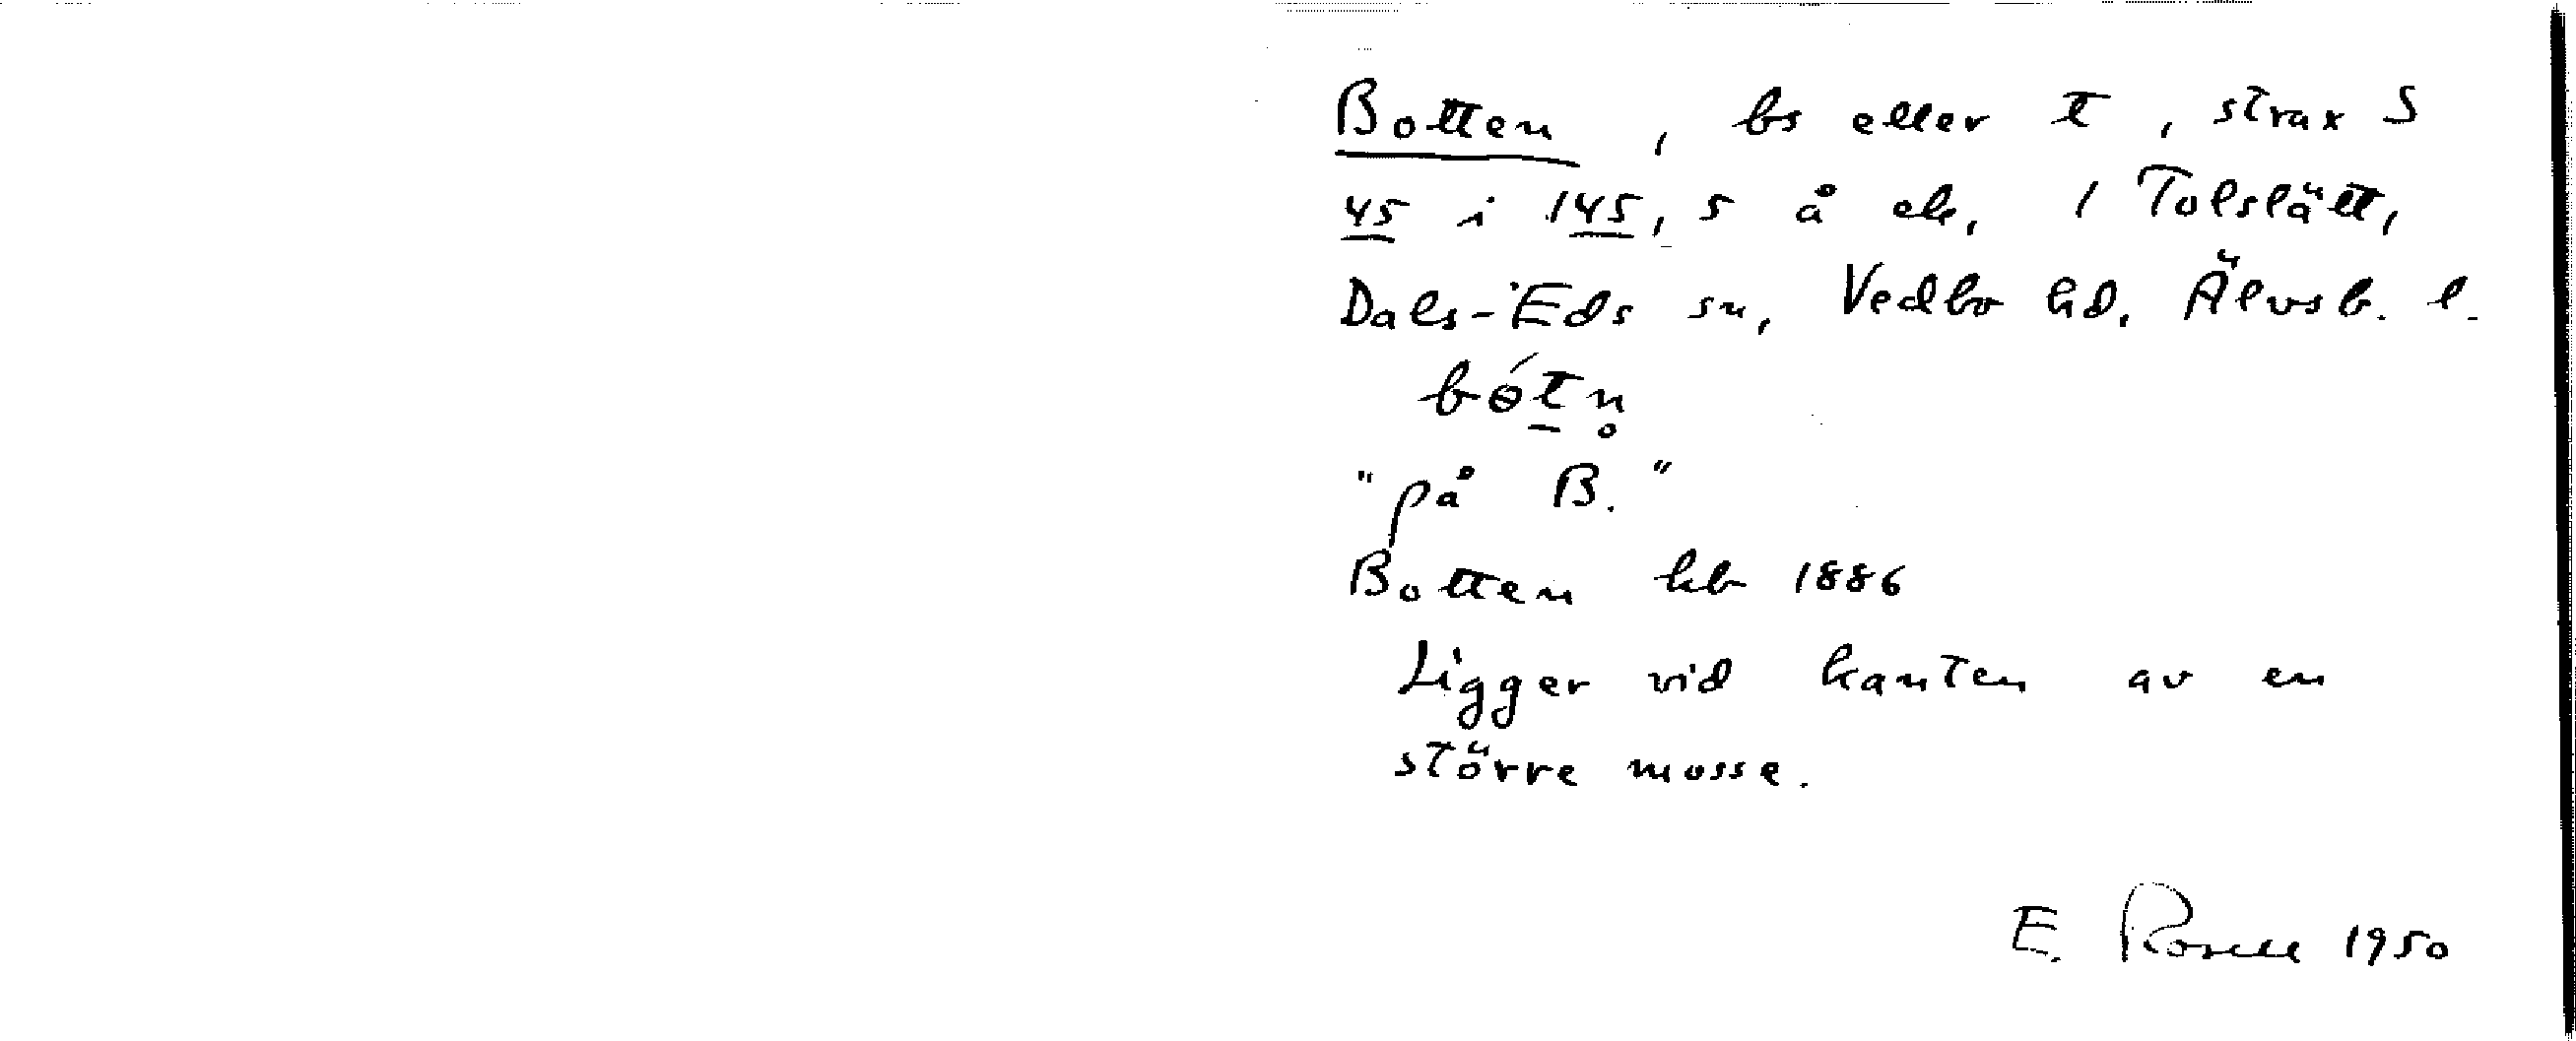 Botten, bs eller t, strax S
45 i 145, 5 å ek, 1 Tolslätt,
Dals-Eds sn, Vedbo hd. Älvsb. l.
bótn̥
"på B."
Botten kb 1886
Ligger vid kanten av en
större mosse.
E. Rosell 1950